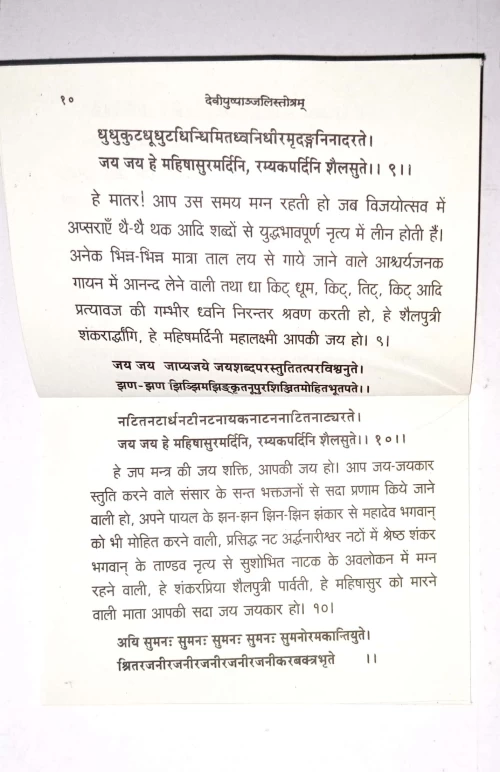 १० देवीपुष्पाञ्जलिस्तोत्रम्
धुधुकुटधूधुटधिन्धिमितध्वनिधीरमृदङ्गनिनादरते।
जय जय हे महिषासुरमर्दिनि, रम्यकपर्दिनि शैलसुते।। ९।।
हे मातर! आप उस समय मग्न रहती हो जब विजयोत्सव में
अप्सराएँ थै-थै थक आदि शब्दों से युद्धभावपूर्ण नृत्य में लीन होती हैं।
अनेक भिन्न-भिन्न मात्रा ताल लय से गाये जाने वाले आश्चर्यजनक
गायन में आनन्द लेने वाली तथा धा किट् धूम, किट्, तिट्, किट् आदि
प्रत्यावज की गम्भीर ध्वनि निरन्तर श्रवण करती हो, हे शैलपुत्री
शंकरार्द्धांगि, हे महिषमर्दिनी महालक्ष्मी आपकी जय हो। ९।
जय जय जाप्यजये जयशब्दपरस्तुतितत्परविश्वनुते।
झण-झण झिञ्झिमझिङ्कृतनूपुरशिञ्जितमोहितभूतपते।।
नटितनटार्धनटीनटनायकनाटननाटितनाट्यरते।
जय जय हे महिषासुरमर्दिनि, रम्यकपर्दिनि शैलसुते।। १०।।
हे जप मन्त्र की जय शक्ति, आपकी जय हो। आप जय-जयकार
स्तुति करने वाले संसार के सन्त भक्तजनों से सदा प्रणाम किये जाने
वाली हो, अपने पायल के झन-झन झिन-झिन झंकार से महादेव भगवान्
को भी मोहित करने वाली, प्रसिद्ध नट अर्द्धनारीश्वर नटों में श्रेष्ठ शंकर
भगवान् के ताण्डव नृत्य से सुशोभित नाटक के अवलोकन में मग्न
रहने वाली, हे शंकरप्रिया शैलपुत्री पार्वती, हे महिषासुर को मारने
वाली माता आपकी सदा जय जयकार हो। १०।
अयि सुमनः सुमनः सुमनः सुमनः सुमनोरमकान्तियुते।
श्रितरजनीरजनीरजनीरजनीरजनीकरबक्त्रभृते ।।